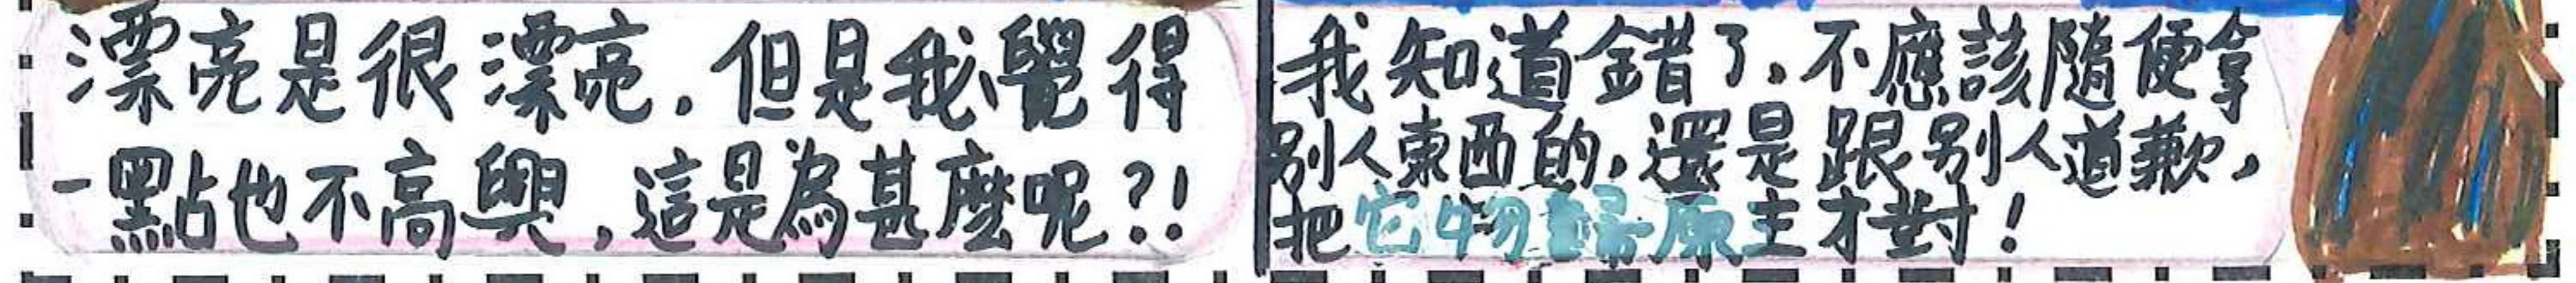 漂亮是很漂亮．但是我覺得
一點也不高興，這是為甚麼呢？！
我知道錯了．不應該隨便拿
別人東西的，還是跟別人道歉，
把它物歸原主才對！